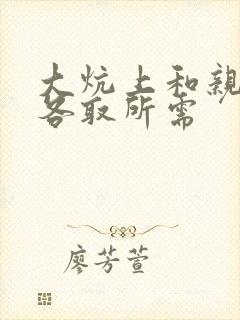 大炕上和親
各取所需
廖芳萱